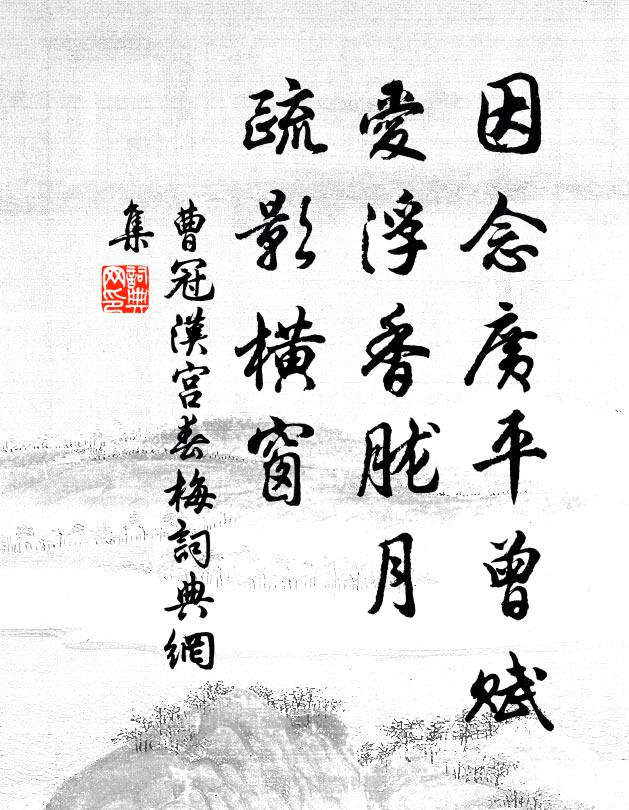 因念廣平曾賦
愛浮香胧月
疏影橫窗
曹冠漢宮春梅詞典網
集
詞典
网印